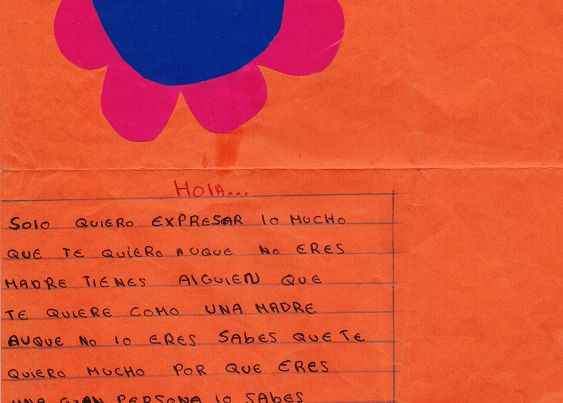 Hola...
Solo QUIERO EXPRESAR lo MUCHO
QUE TE QUIERO AUQUE NO ERES
MADRE TIENES AlGUIEN QUE
TE QUIERE COMO UNA MADRE
AUQUE No lo ERES SABES QUE TE
QUIERO MUCHO POR QUE ERES
UNA GRAN PERSONA lo SABES